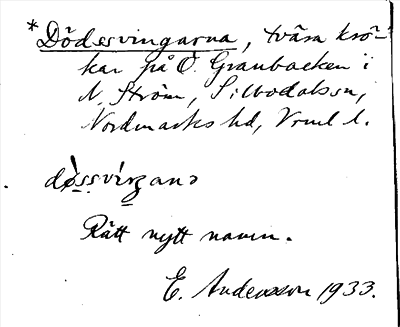 *Dödesvingarna, tvära krö-
kar på Ö. Granbacken i
N. Ström, Silbodals sn,
Nordmarks hd, Vrml l.
Rätt nytt namn.
E. Andersson 1933.